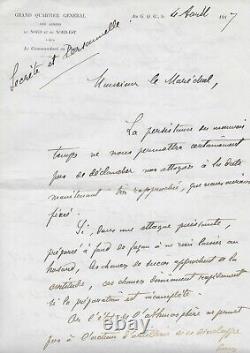 GRAND QUARTIER GÉNÉRAL
DES ARMÉES
DU NORD ET DU NORD-EST
Le Commandant en
Au G. Q. G., le 4 Avril 1917
Secrète et Personnelle
Monsieur le Maréchal,
La persistance du mauvais
temps ne nous permettra certainement
pas de déclencher nos attaques à la date
maintenant très rapprochée, que nous avions
fixée.
Si, dans une attaque puissante,
préparée à fond de façon à ne rien laisser au
hasard, les chances de succès approchent de la
certitude, ces chances diminuent rapidement
si la préparation est incomplète.
Or l'état de l'atmosphère ne permet
pas à l'action d'artillerie